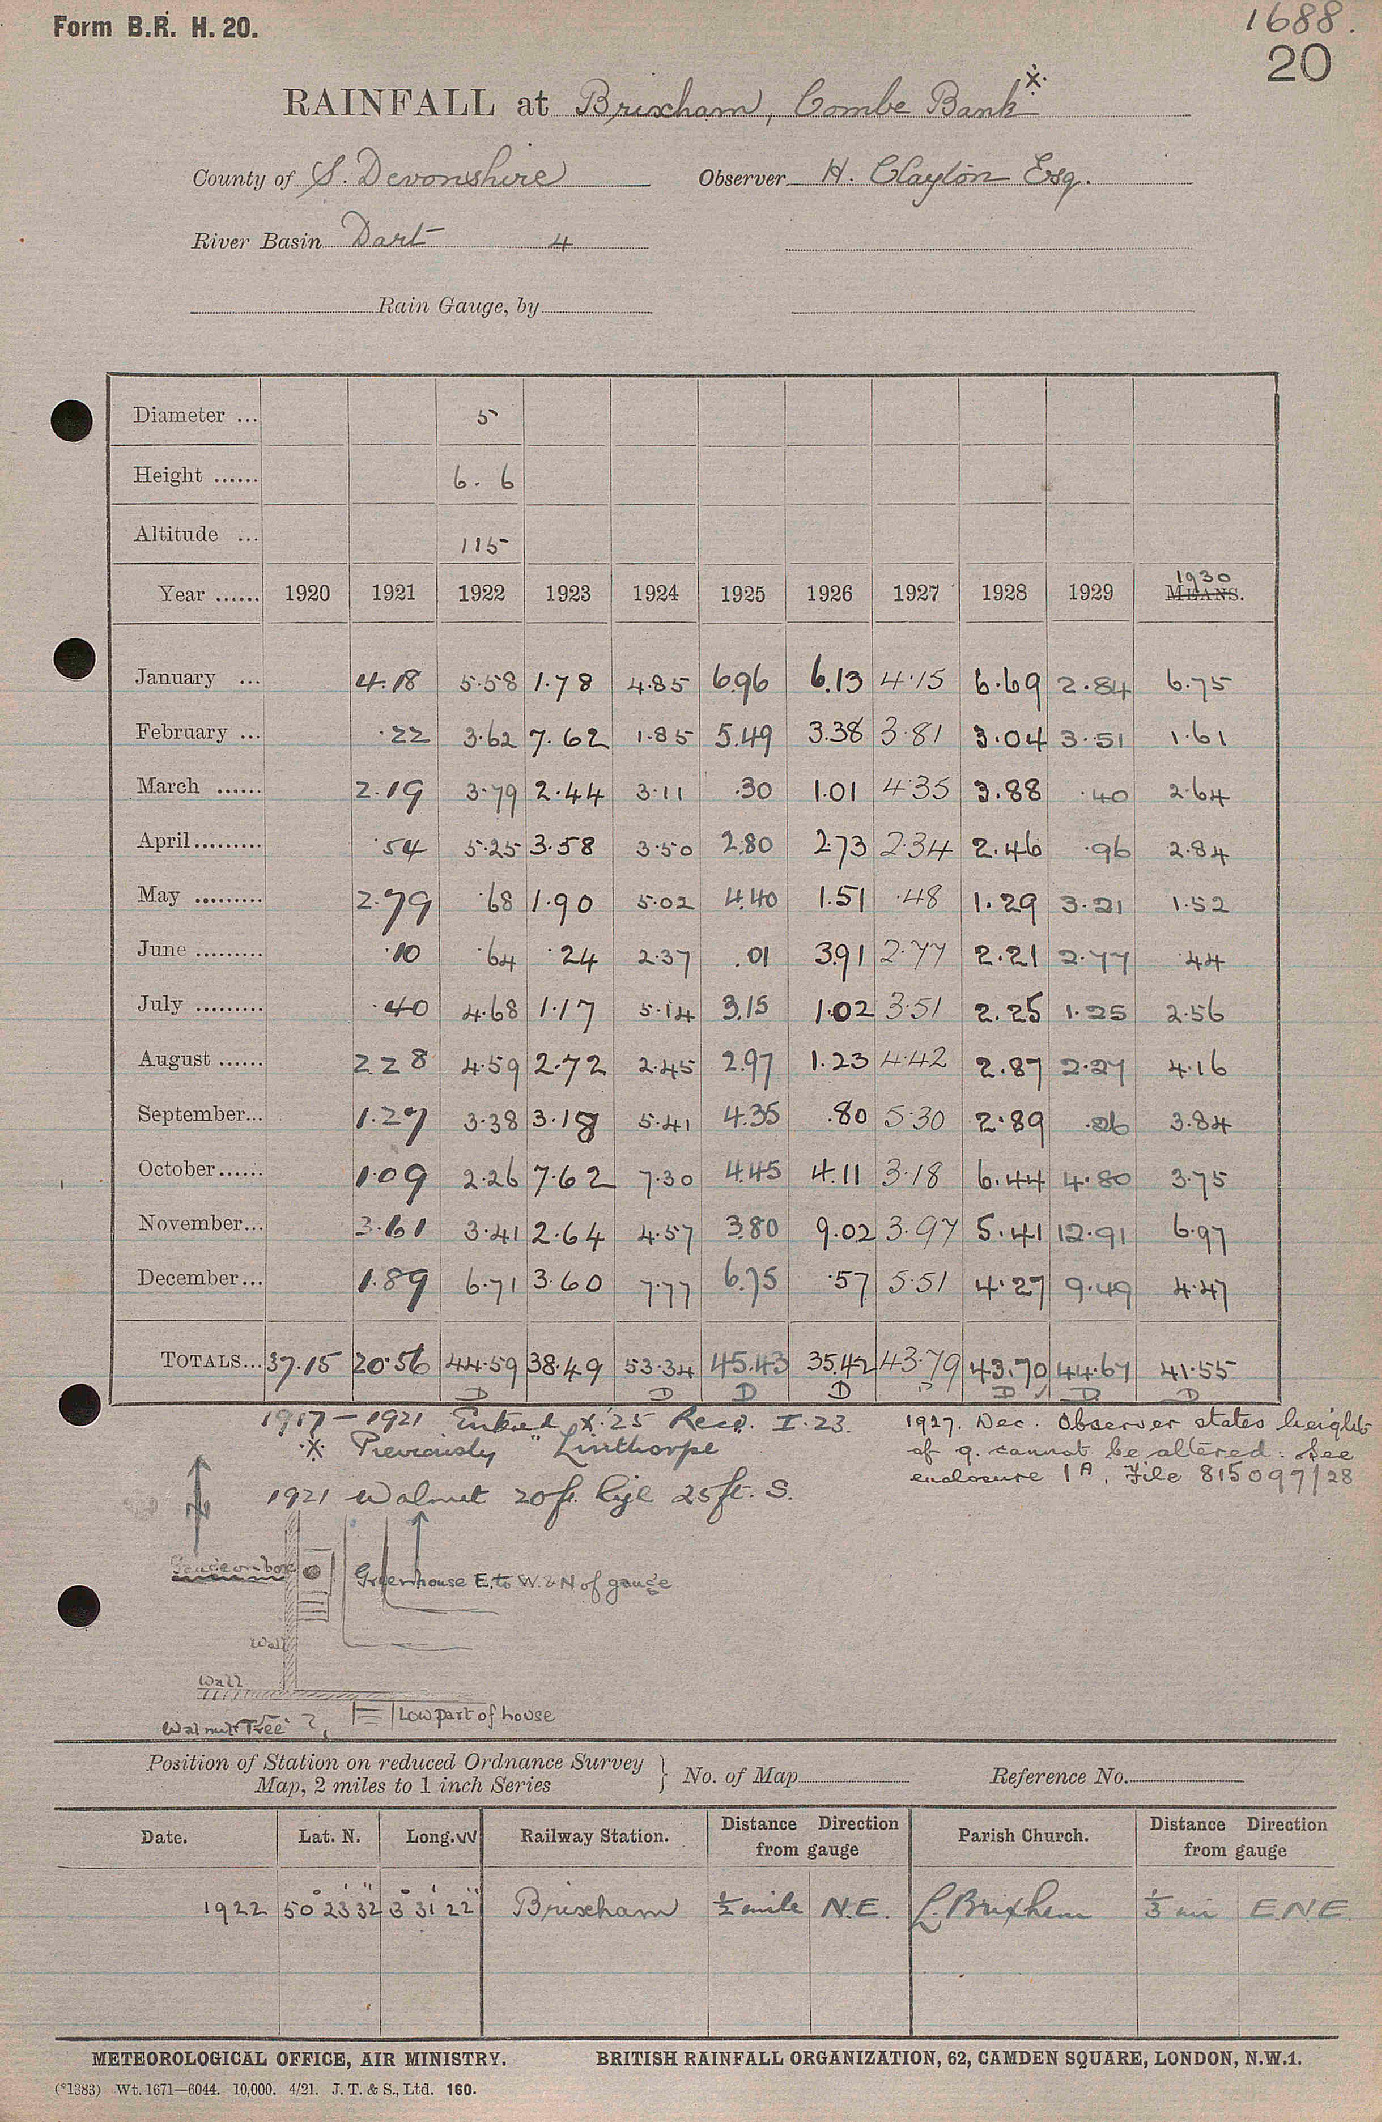 Form B.R. H. 20.
1688.
20
RAINFALL at Brixham, Combe Bank x
County of S. Devonshire Observer H. Clayton Esq.
River Basin Dart 4
Rain Gauge, by
Diameter ... 5
Height ...... 6. 6
Altitude ... 115
Year ...... 1920 1921 1922 1923 1924 1925 1926 1927 1928 1929 1930 MEANS.
January ... 4.18 5.58 1.78 4.85 6.96 6.13 4.15 6.69 2.84 6.75
February ... .22 3.62 7.62 1.85 5.49 3.38 3.81 3.04 3.51 1.61
March ...... 2.19 3.79 2.44 3.11 .30 1.01 4.35 3.88 .40 2.64
April......... .54 5.25 3.58 3.50 2.80 2.73 2.34 2.46 .96 2.84
May ......... 2.79 .68 1.90 5.02 4.40 1.51 .48 1.29 3.21 1.52
June ......... .10 .64 .24 2.37 .01 3.91 2.77 2.21 2.77 .44
July ......... .40 4.68 1.17 5.14 3.15 1.02 3.51 2.25 1.25 2.56
August ...... 2 28 4.59 2.72 2.45 2.97 1.23 4.42 2.87 2.27 4.16
September... 1.27 3.38 3.18 5.41 4.35 .80 5.30 2.89 .26 3.84
October...... 1.09 2.26 7.62 7.30 4.45 4.11 3.18 6.44 4.80 3.75
November... 3.61 3.41 2.64 4.57 3.80 9.02 3.97 5.41 12.91 6.97
December... 1.89 6.71 3.60 7.77 6.75 .57 5.51 4.27 9.49 4.47
TOTALS... 37.15 20.56 44.59 38.49 53.34 45.43 35.42 43.79 43.70 44.67 41.55
D D D D D D D D
1917 - 1921 Entered X.'25 Recd. I.23.
x Previously "Linthorpe
1927. Dec. Observer states height
of g. cannot be altered. See
enclosure 1A, File 815097/28
1921 Walnut 20ft. high 25ft. S.
N
Gauge on box
Greenhouse E. to W. & N of gauge
Wall
Wall
Walnut Tree
Low part of house
Position of Station on reduced Ordnance Survey
Map, 2 miles to 1 inch Series
No. of Map Reference No.
Date. Lat. N. Long. W Railway Station. Distance Direction from gauge Parish Church. Distance Direction from gauge
1922 50° 23' 32" 3° 31' 22" Brixham ½ mile N.E. L. Brixham ⅓ mi E.N.E
METEOROLOGICAL OFFICE, AIR MINISTRY. BRITISH RAINFALL ORGANIZATION, 62, CAMDEN SQUARE, LONDON, N.W.1.
(*1383) Wt. 1671—6044. 10,000. 4/21. J. T. & S., Ltd. 160.